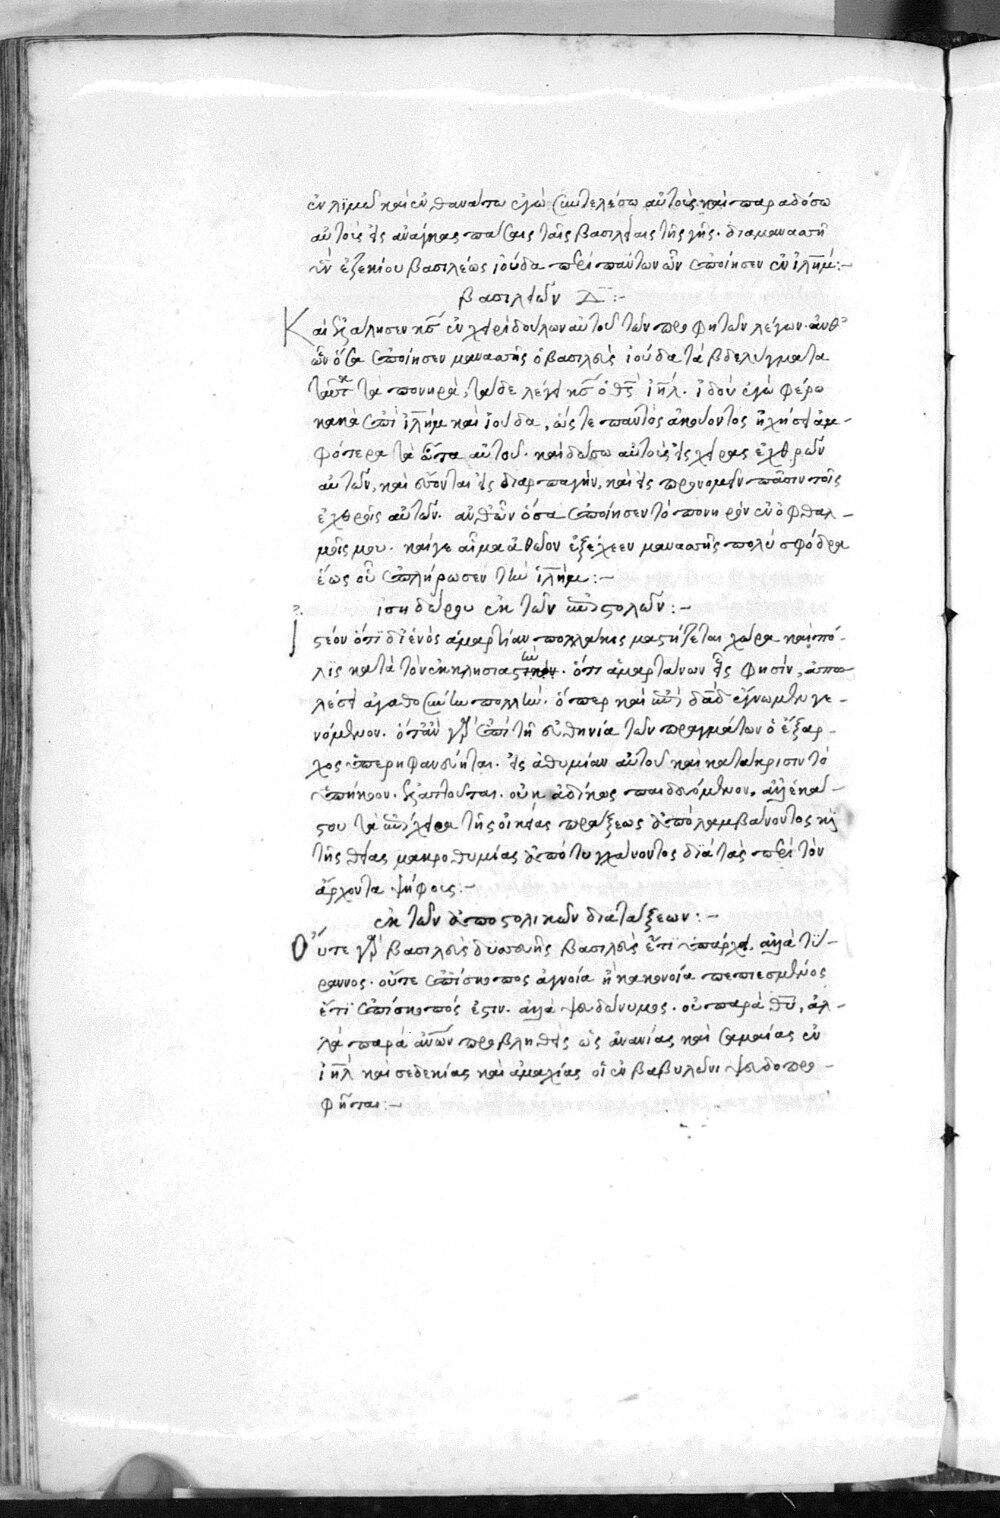 ἐν λϊμῶ καὶ ἐν θανάτω ἐγὼ συντελέσω αὐτοὺς καὶ παραδόσω
αὐτοὺς εἰς ἀνάγκας πάσαις ταῖς βασιλείαις τῆς γῆς· διὰ μανασσῆ
υἱὸν ἐζεκίου βασιλέως ἰούδα περὶ πάντων ὧν ἐποίησεν ἐν ἰλῆμ:-
βασιλειῶν Δ:-
Καὶ ἐλάλησεν κς ἐν χειρὶ δούλων αὐτοῦ τῶν προφητῶν λέγων· ἀνθ'
ὧν ὅσα ἐποίησεν μανασσῆς ὁ βασιλεὺς ἰούδα τὰ βδελύγματα
ταῦτα τὰ πονηρὰ, τάδε λέγει κς ὁ θς ἰηλ. ἰδοὺ ἐγὼ φέρω
κακὰ ἐπὶ ἰλὴμ καὶ ἰούδα, ὥστε παντὸς ἀκούοντος ἠχήσει ἀμ-
φότερα τὰ ὦτα αὐτοῦ· καὶ δώσω αὐτοὺς εἰς χεῖρας ἐχθρῶν
αὐτῶν, καὶ ἔσονται εἰς διαρπαγὴν, καὶ εἰς προνομὴν πᾶσιν τοῖς
ἐχθροῖς αὐτῶν. ἀνθ' ὧν ὅσα ἐποίησεν τὸ πονηρὸν ἐν ὀφθαλ-
μοῖς μου. καίγε αἷμα ἀθῶον ἐξέχεεν μανασσῆς πολὺ σφόδρα
ἕως οὗ ἐπλήρωσεν τὴν ἰλὴμ:-
ἰσηδώρου ἐκ τῶν ἐπιστολῶν:-
Ἰστέον ὅτι δι' ἑνὸς ἁμαρτίαν πολλάκις μαστίζεται χώρα καὶ πό-
λϊς κατὰ τὸν ἐκκλησιαστὴν. ὅτι ἁμαρτάνων εἷς φησίν, ἀπο
λέσει ἀγαθοσύνην πολλήν. ὅπερ καὶ ἐπὶ δαδ ἔγνωμεν γε-
νόμενον. ὁπόταν γὰρ ἐπὶ τῆ εὐθηνία τῶν πραγμάτων ὁ ἔξαρ-
χος ὑπερηφανεύηται. εἰς ἀθυμίαν αὐτοῦ καὶ κατάκρισιν τὸ
ὑπήκοον. οὐκ ἀδίκως παιδευόμενον. ἀλλ' ἑκάσ-
του τὰ ἐπίχειρα τῆς οἰκείας πράξεως ἀπολαμβάνοντος καὶ
τῆς θείας μακροθυμίας ἀποτυγχάνοντος διὰ τὰς περὶ τὸν
ἄρχοντα ψήφους:-
ἐκ τῶν ἀποστολικῶν διατάξεων:-
Οὔτε γὰρ βασιλεὺς δυσσεβὴς βασιλεὺς ἔτϊ ὑπάρχει. ἀλλὰ τύ-
ραννος. οὔτε ἐπίσκοπος ἀγνοία ἢ κακονοία πεπιεσμένος
ἔτϊ ἐπίσκοπός ἐστιν. ἀλλὰ ψευδώνυμος. οὐ παρὰ θυ, ἀλ-
λὰ παρὰ ἀνων προβληθεὶς ὡς ἀνανίας καὶ σαμαίας ἐν
ἰηλ καὶ σεδεκίας καὶ ἀμαχίας οἱ ἐν βαβυλῶνι ψευδοπρο-
φῆται:-